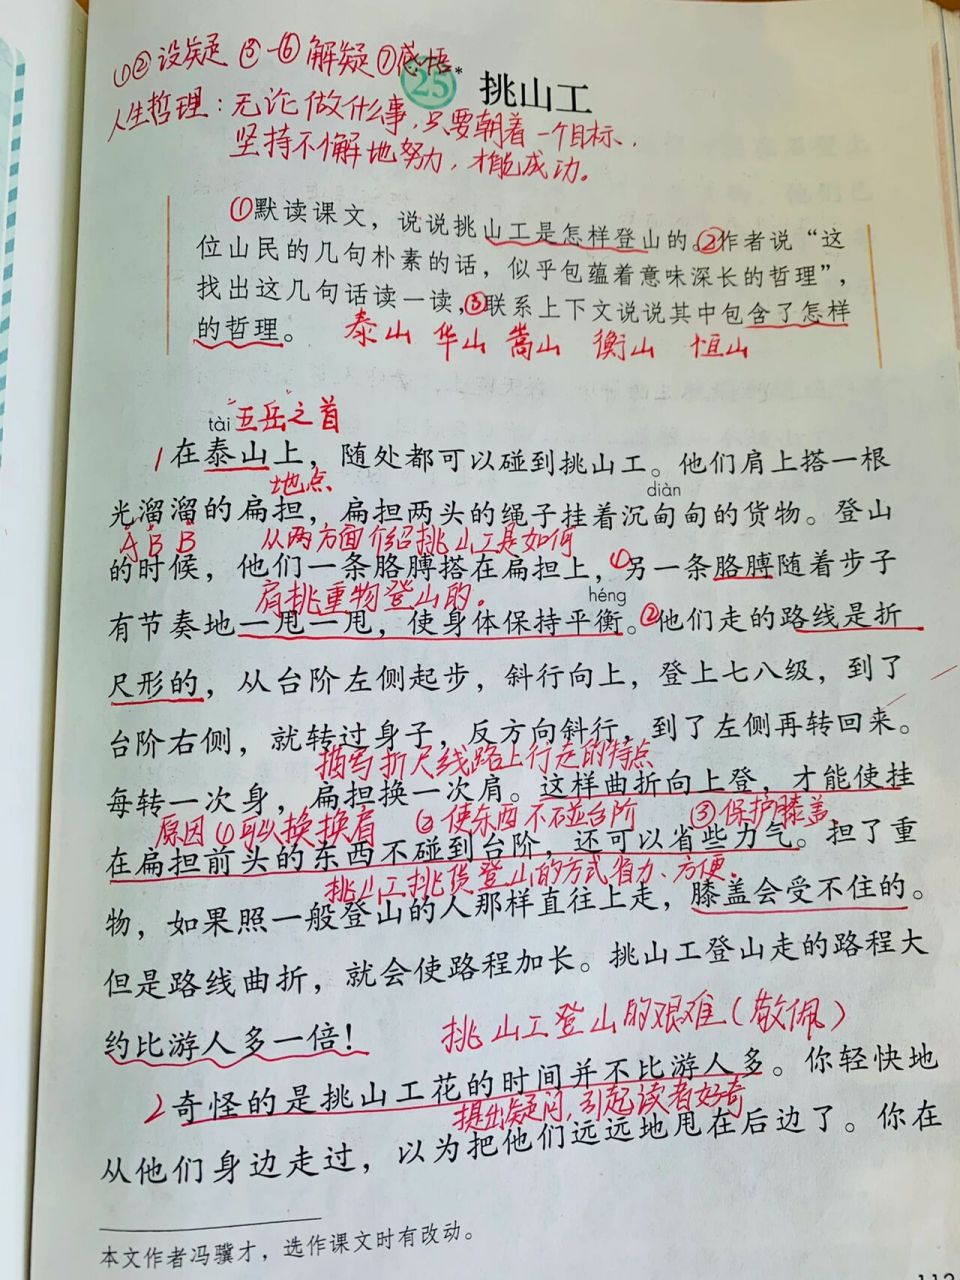 ①②设疑 ③-⑥解疑 ⑦感悟
25* 挑山工
人生哲理：无论做什么事，只要朝着一个目标、
坚持不懈地努力，才能成功。
①默读课文，说说挑山工是怎样登山的。②作者说“这
位山民的几句朴素的话，似乎包蕴着意味深长的哲理”，
找出这几句话读一读，③联系上下文说说其中包含了怎样
的哲理。
泰山 华山 嵩山 衡山 恒山
tài
“五岳”之首
1在泰山上，随处都可以碰到挑山工。他们肩上搭一根
地点
diàn
光溜溜的扁担，扁担两头的绳子挂着沉甸甸的货物。登山
A B B 从两方面介绍挑山工是如何
的时候，他们一条胳膊搭在扁担上，①另一条胳膊随着步子
肩挑重物登山的。
héng
有节奏地一甩一甩，使身体保持平衡。②他们走的路线是折
尺形的，从台阶左侧起步，斜行向上，登上七八级，到了
台阶右侧，就转过身子，反方向斜行，到了左侧再转回来。
描写折尺线路上行走的特点
每转一次身，扁担换一次肩。这样曲折向上登，才能使挂
原因①可以换换肩 ②使东西不碰台阶 ③保护膝盖
在扁担前头的东西不碰到台阶，还可以省些力气。担了重
挑山工挑货登山的方式省力、方便。
物，如果照一般登山的人那样直往上走，膝盖会受不住的。
但是路线曲折，就会使路程加长。挑山工登山走的路程大
约比游人多一倍！
挑山工登山的艰难（敬佩）
2奇怪的是挑山工花的时间并不比游人多。你轻快地
提出疑问，引起读者好奇
从他们身边走过，以为把他们远远地甩在后边了。你在
本文作者冯骥才，选作课文时有改动。